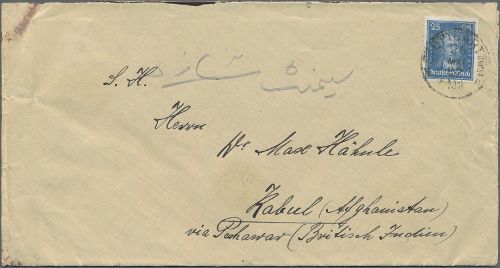 25 25
Deutsches Reich
S. H.
Herrn
Dr Max Hähnle
Kabul (Afghanistan)
via Peshawar (Britisch Indien)